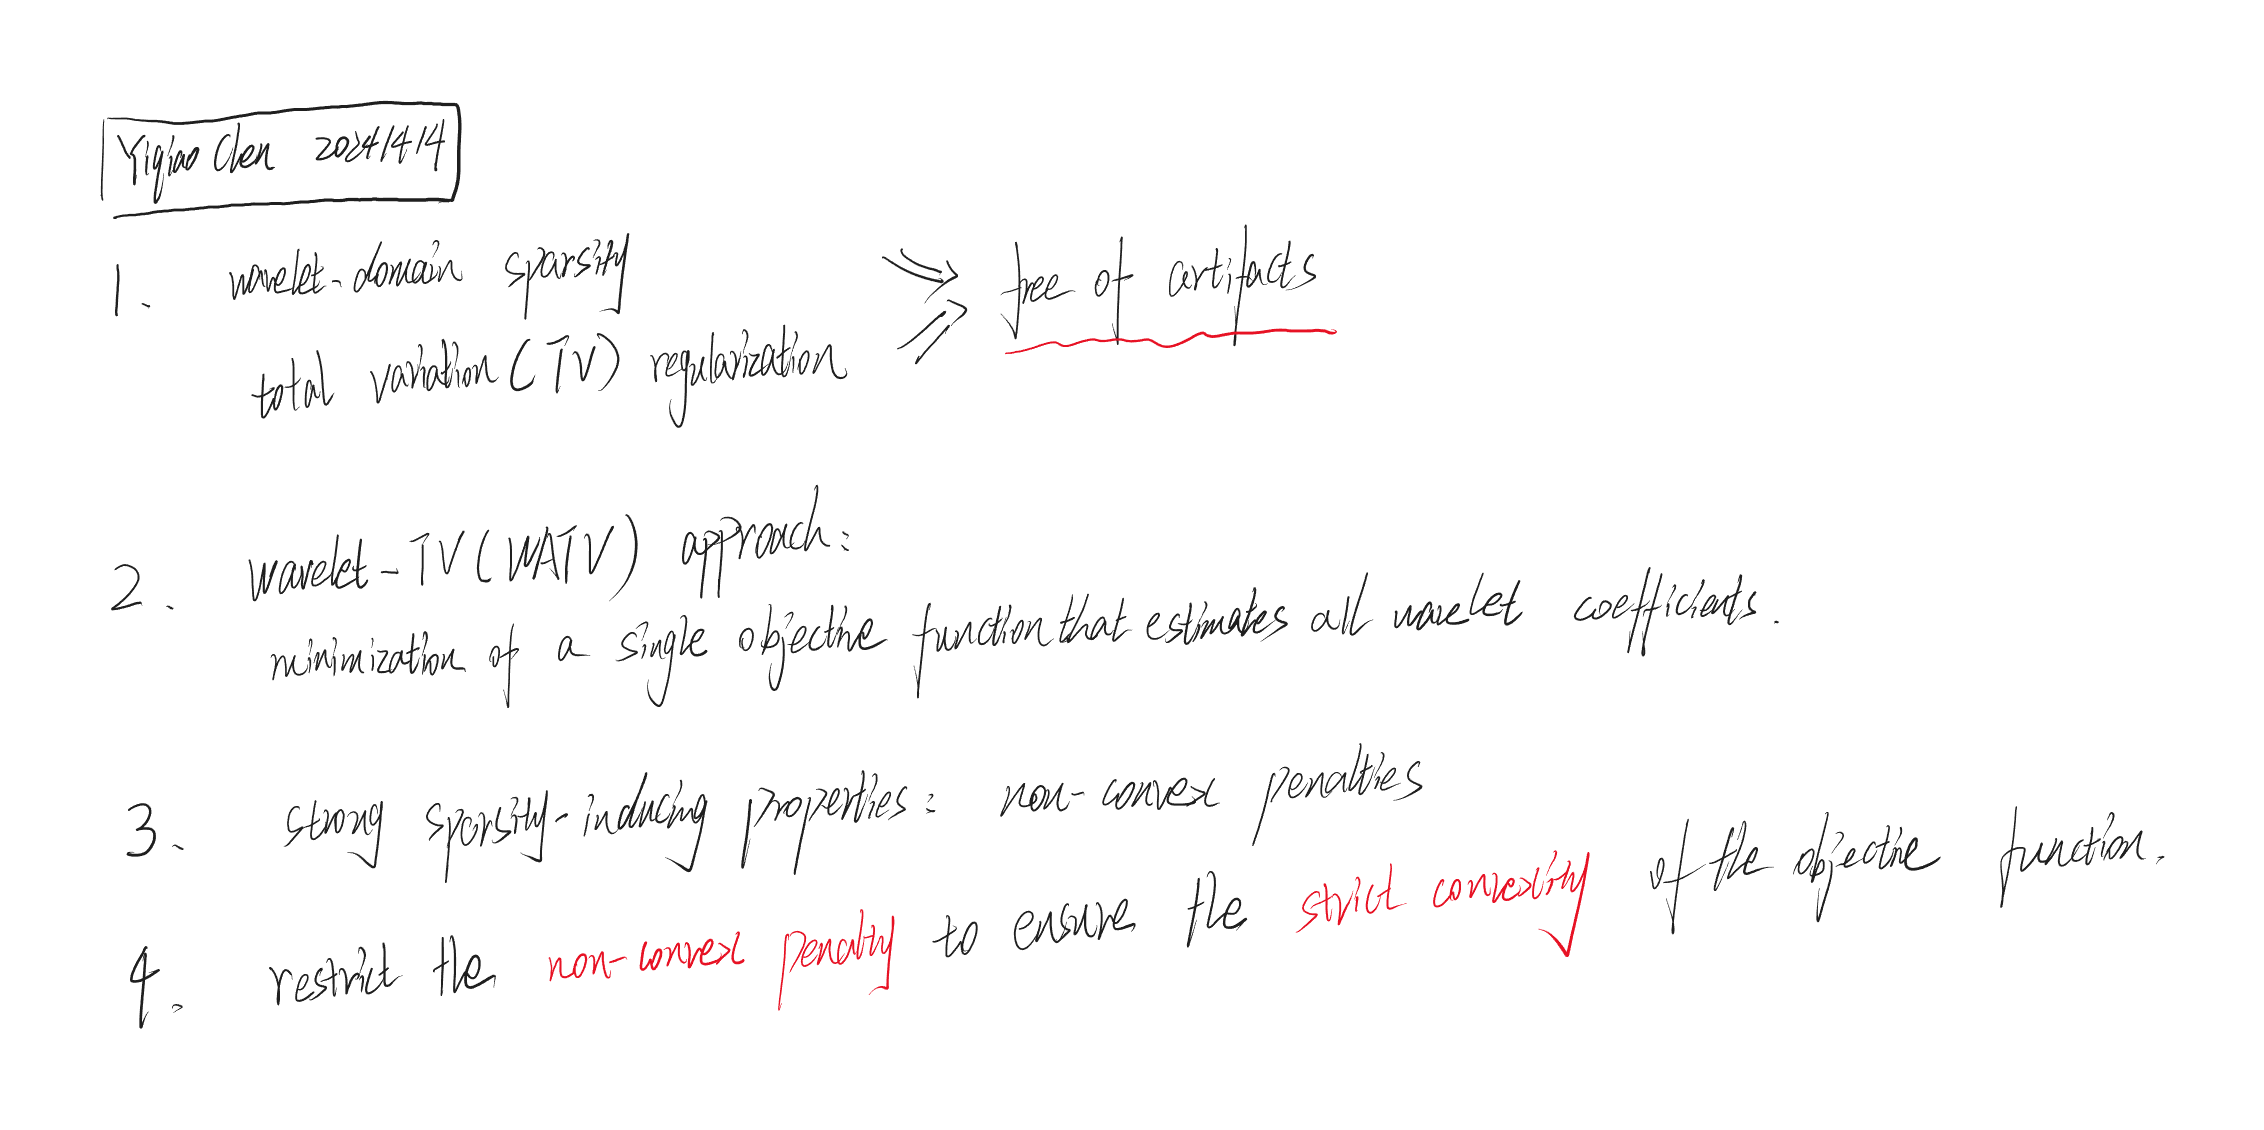 Yiqiao Chen 2024/4/14
1. wavelet-domain sparsity
total variation (TV) regularization
⇒ free of artifacts
2. wavelet-TV (WATV) approach:
minimization of a single objective function that estimates all wavelet coefficients.
3. strong sparsity-inducing properties: non-convex penalties
4. restrict the non-convex penalty to ensure the strict convexity of the objective function.